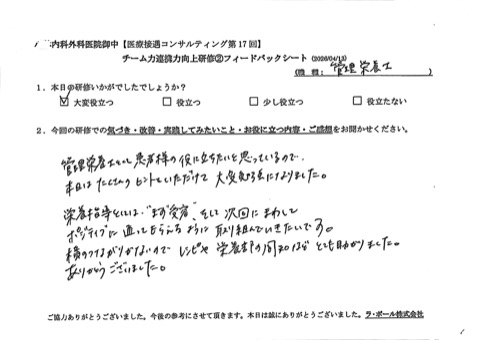 内科外科医院御中【医療接遇コンサルティング第17回】
チーム力連携力向上研修②フィードバックシート (2026/04/13)
(職種: 管理栄養士
1. 本日の研修いかがでしたでしょうか?
☑ 大変役立つ □ 役立つ □ 少し役立つ □ 役立たない
2. 今回の研修での気づき・改善・実践してみたいこと・お役に立つ内容・ご感想をお聞かせください。
管理栄養士として患者様の役に立ちたいと思っているので、
本日はたくさんのヒントをいただけて大変勉強になりました。
栄養指導としては、"まず受容"、そして次回にまわして
ポジティブに直してもらえるように取り組んでいきたいです。
横のつながりがないので レシピや栄養士の など とても助かりました。
ありがとうございました。
ご協力ありがとうございました。今後の参考にさせて頂きます。本日は誠にありがとうございました。ラ・ポール株式会社